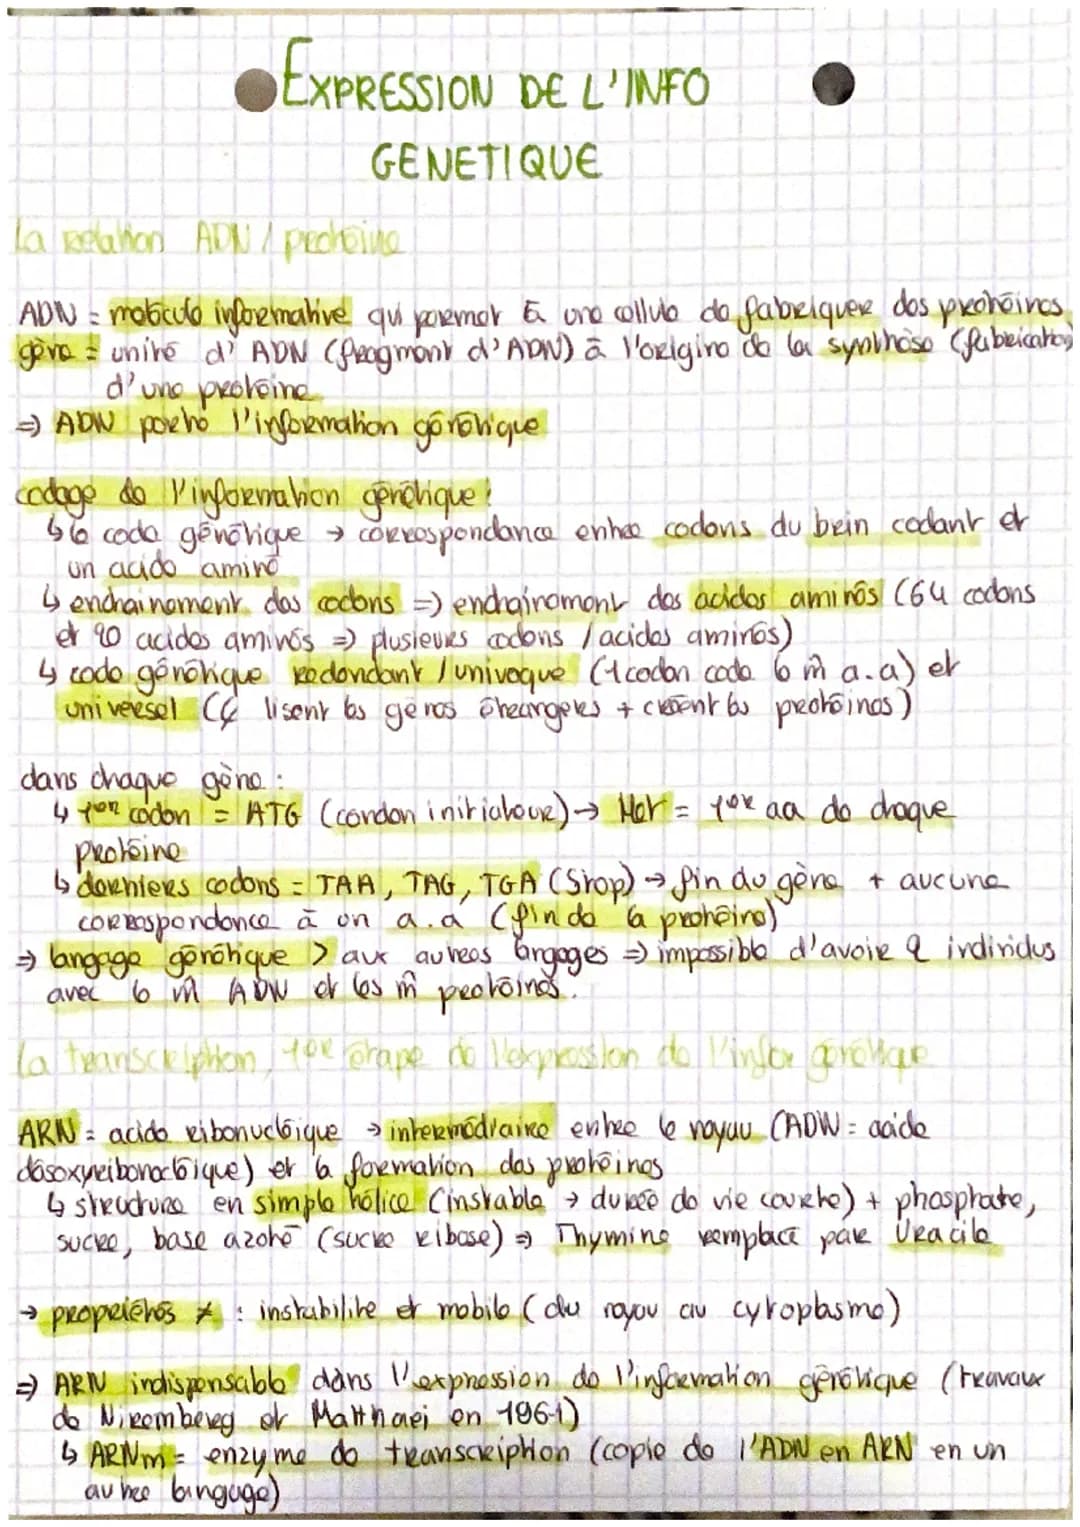 EXPRESSION DE L'INFO
GENETIQUE
La relation ADN / protéine
ADN = molécule informative qui permet à une cellule de fabriquer des protéines
gène = unité d'ADN (fragment d'ADN) à l'origine de la synthèse (fabrication)
d'une protéine
⇒ ADN porte l'information génétique
codage de l'information génétique :
↳ le code génétique → correspondance entre codons du brin codant et
un acide aminé
↳ enchainement des codons ⇒ enchainement des acides aminés (64 codons
et 20 acides aminés ⇒ plusieurs codons / acides aminés)
↳ code génétique redondant / univoque (1 codon code le m̂ a.a) et
universel ( lisent les gènes étrangers + créent les protéines)
dans chaque gène :
↳ 1er codon = ATG (condon initiateur) → Met = 1er aa de chaque
protéine
↳ derniers codons = TAA, TAG, TGA (Stop) → fin du gène + aucune
correspondance à un a.a (fin de la protéine)
⇒ langage génétique > aux autres langages ⇒ impossible d'avoir 2 individus
avec le m̂ ADN et les m̂ protéines.
La transcription, 1ère étape de l'expression de l'infor génétique
ARN = acide ribonucléique → intermédiaire entre le noyau (ADN = acide
désoxyribonucléique) et la formation des protéines
↳ structure en simple hélice (instable → durée de vie courte) + phosphate,
sucre, base azoté (sucre ribose) ⇒ Thymine remplacé par Uracile
→ propriétés ≠ : instabilité et mobile (du noyau au cytoplasme)
⇒ ARN indispensable dans l'expression de l'information génétique (travaux
de Niremberg et Matthaei en 1961)
↳ ARNm = enzyme de transcription (copie de l'ADN en ARN en un
autre langage)